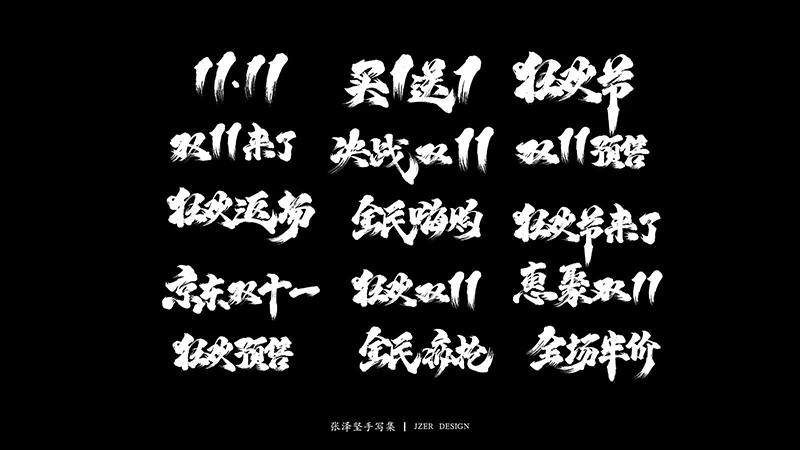 11.11
买1送1
狂欢节
双11来了
决战双11
双11预售
狂欢返场
全民嗨购
狂欢节来了
京东双十一
狂欢双11
惠聚双11
狂欢预售
全民疯抢
全场半价
张泽坚手写集 | JZER DESIGN